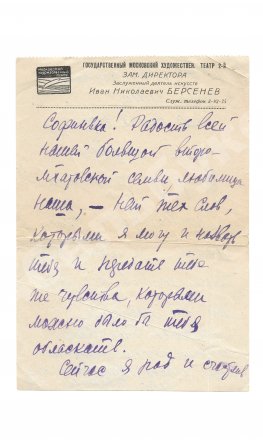 ГОСУДАРСТВЕННЫЙ МОСКОВСКИЙ ХУДОЖЕСТВЕН. ТЕАТР 2-й
ЗАМ. ДИРЕКТОРА
Заслуженный деятель искусств
Иван Николаевич БЕРСЕНЕВ
Служ. телефон
Софинька! Радость всей
нашей большой второ-
мхатовской семьи, любимица
наша, – нет тех слов,
которыми я могу и назвать
тебя и передать те
же чувства, которыми
можно было бы тебя
обласкать.
Сейчас я рад и счастлив